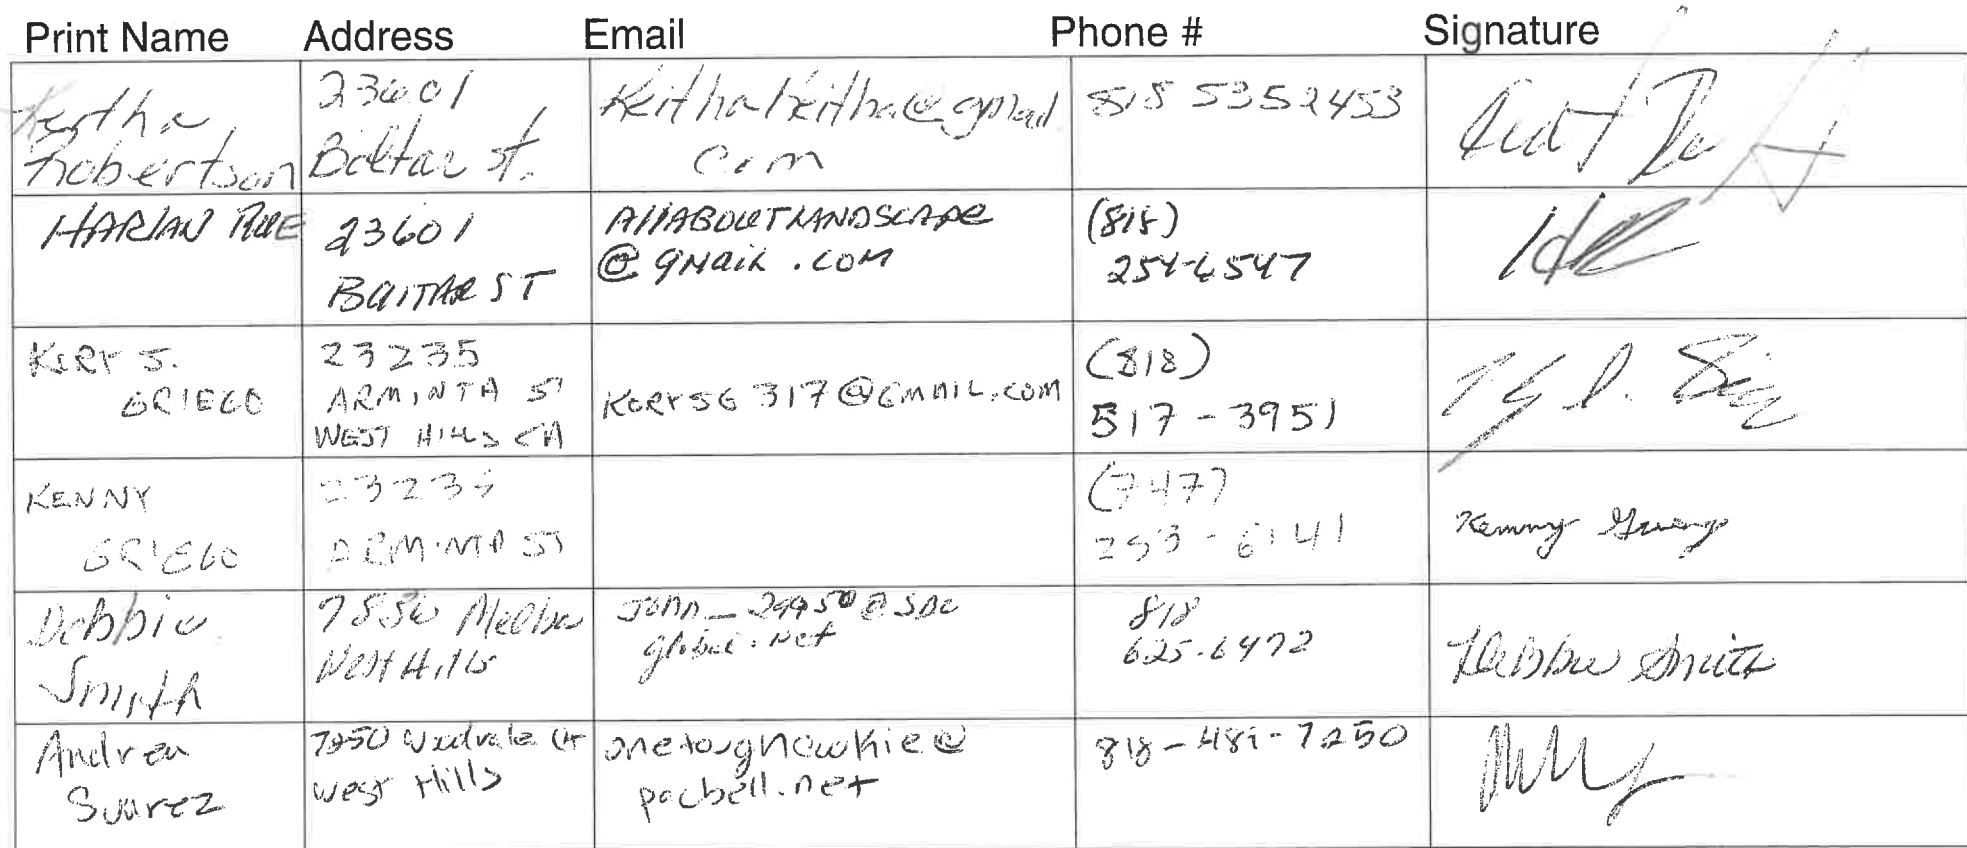 Print Name Address Email Phone # Signature
Keitha
Robertson
23601
Baltar st.
Keithakeitha@gmail
com
818 5352453
HARLAN RUE
23601
BALTAR ST
AllABOUTLANDSCAPE
@gmail.com
(818)
254-6547
KORY J.
GRIEGO
23235
ARMINTA ST
WEST HILLS CA
KORYJG317@GMAIL.COM
(818)
517-3951
KENNY
GRIEGO
23235
ARMINTA ST
(747)
253-6141
Kenny Griego
Debbie
Smith
Melba
West Hills
global.net
818
625-6472
Debbie Smith
Andrea
Suarez
7250 Woodvale Ct
West Hills
onetoughcowkie@
pacbell.net
818-481-7250